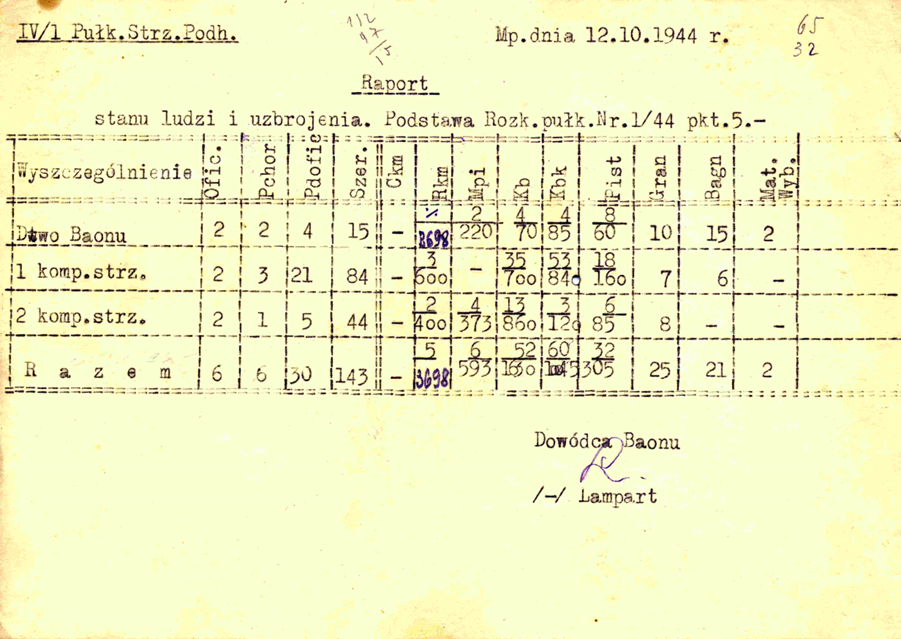 IV/1 Pułk.Strz.Podh.
Mp.dnia 12.10.1944 r.
65
32
Raport
stanu ludzi i uzbrojenia. Podstawa Rozk.pułk.Nr.1/44 pkt.5.-
Wyszczególnienie Ofic. Pchor Pdofic Szer. Ckm Rkm Mpi Kb Kbk Pist Gran Bagn Mat. Wyb.
2 4 4 8
Dtwo Baonu 2 2 4 15 - 220 70 85 60 10 15 2
3 35 53 18
1 komp.strz. 2 3 21 84 - 600 - 700 840 160 7 6 -
2 4 13 3 6
2 komp.strz. 2 1 5 44 - 400 373 860 120 85 8 - -
5 6 52 60 32
R a z e m 6 6 30 143 - 3698 593 305 25 21 2
Dowódca Baonu
/-/ Lampart